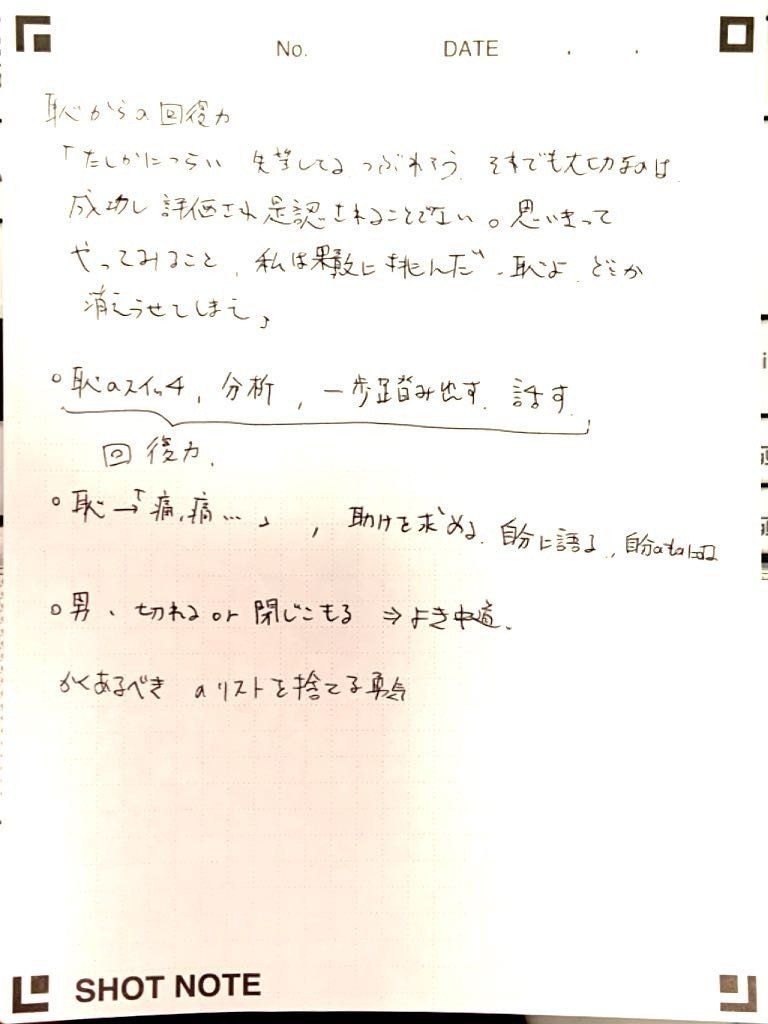 No. DATE . .
恥からの回復力
「たしかにつらい 失望してる つぶれそう. それでも大切なのは
成功し評価され是認されることでない。思いきって
やってみること、私は果敢に挑んだ 恥よ どこか
消えうせてしまえ」
○恥のスイッチ, 分析, 一歩踏み出す. 話す.
回復力.
○恥→「痛,痛…」, 助けを求める. 自分に語る,自分のものに
○男、切れる or 閉じこもる ⇒よき中道.
かくあるべき のリストを捨てる勇気
SHOT NOTE